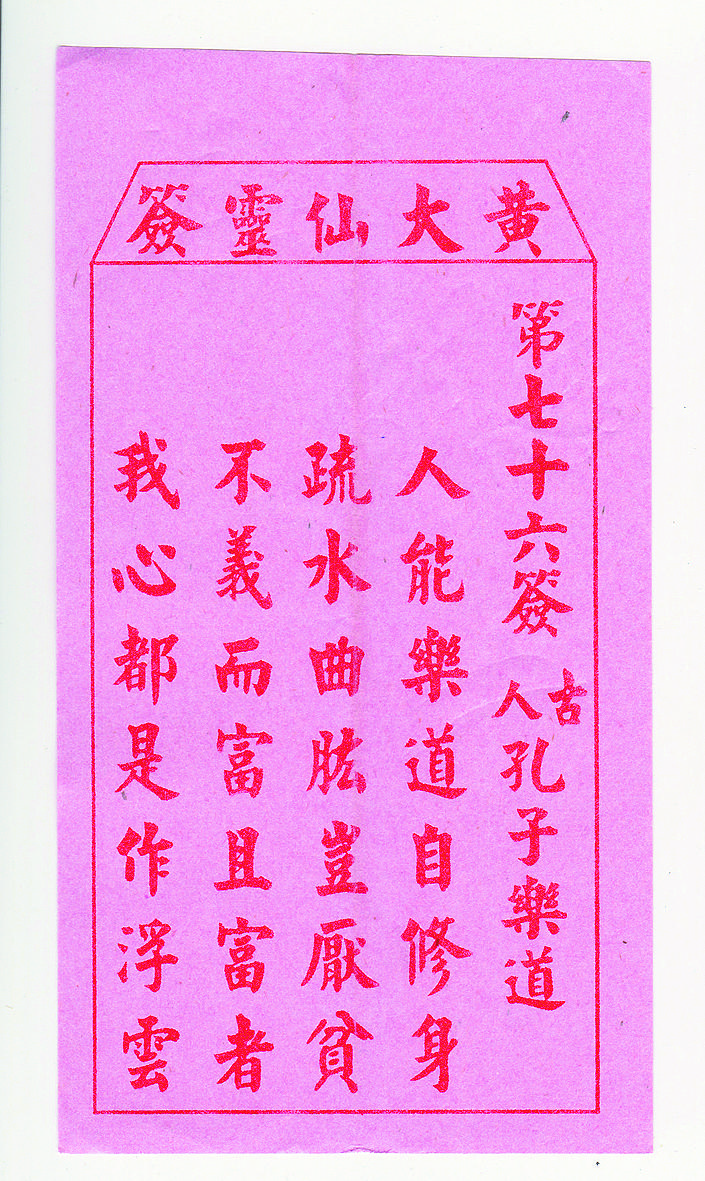 黄大仙靈簽
第七十六簽 古人孔子樂道
人能樂道自修身
疏水曲肱豈厭貧
不義而富且富者
我心都是作浮雲